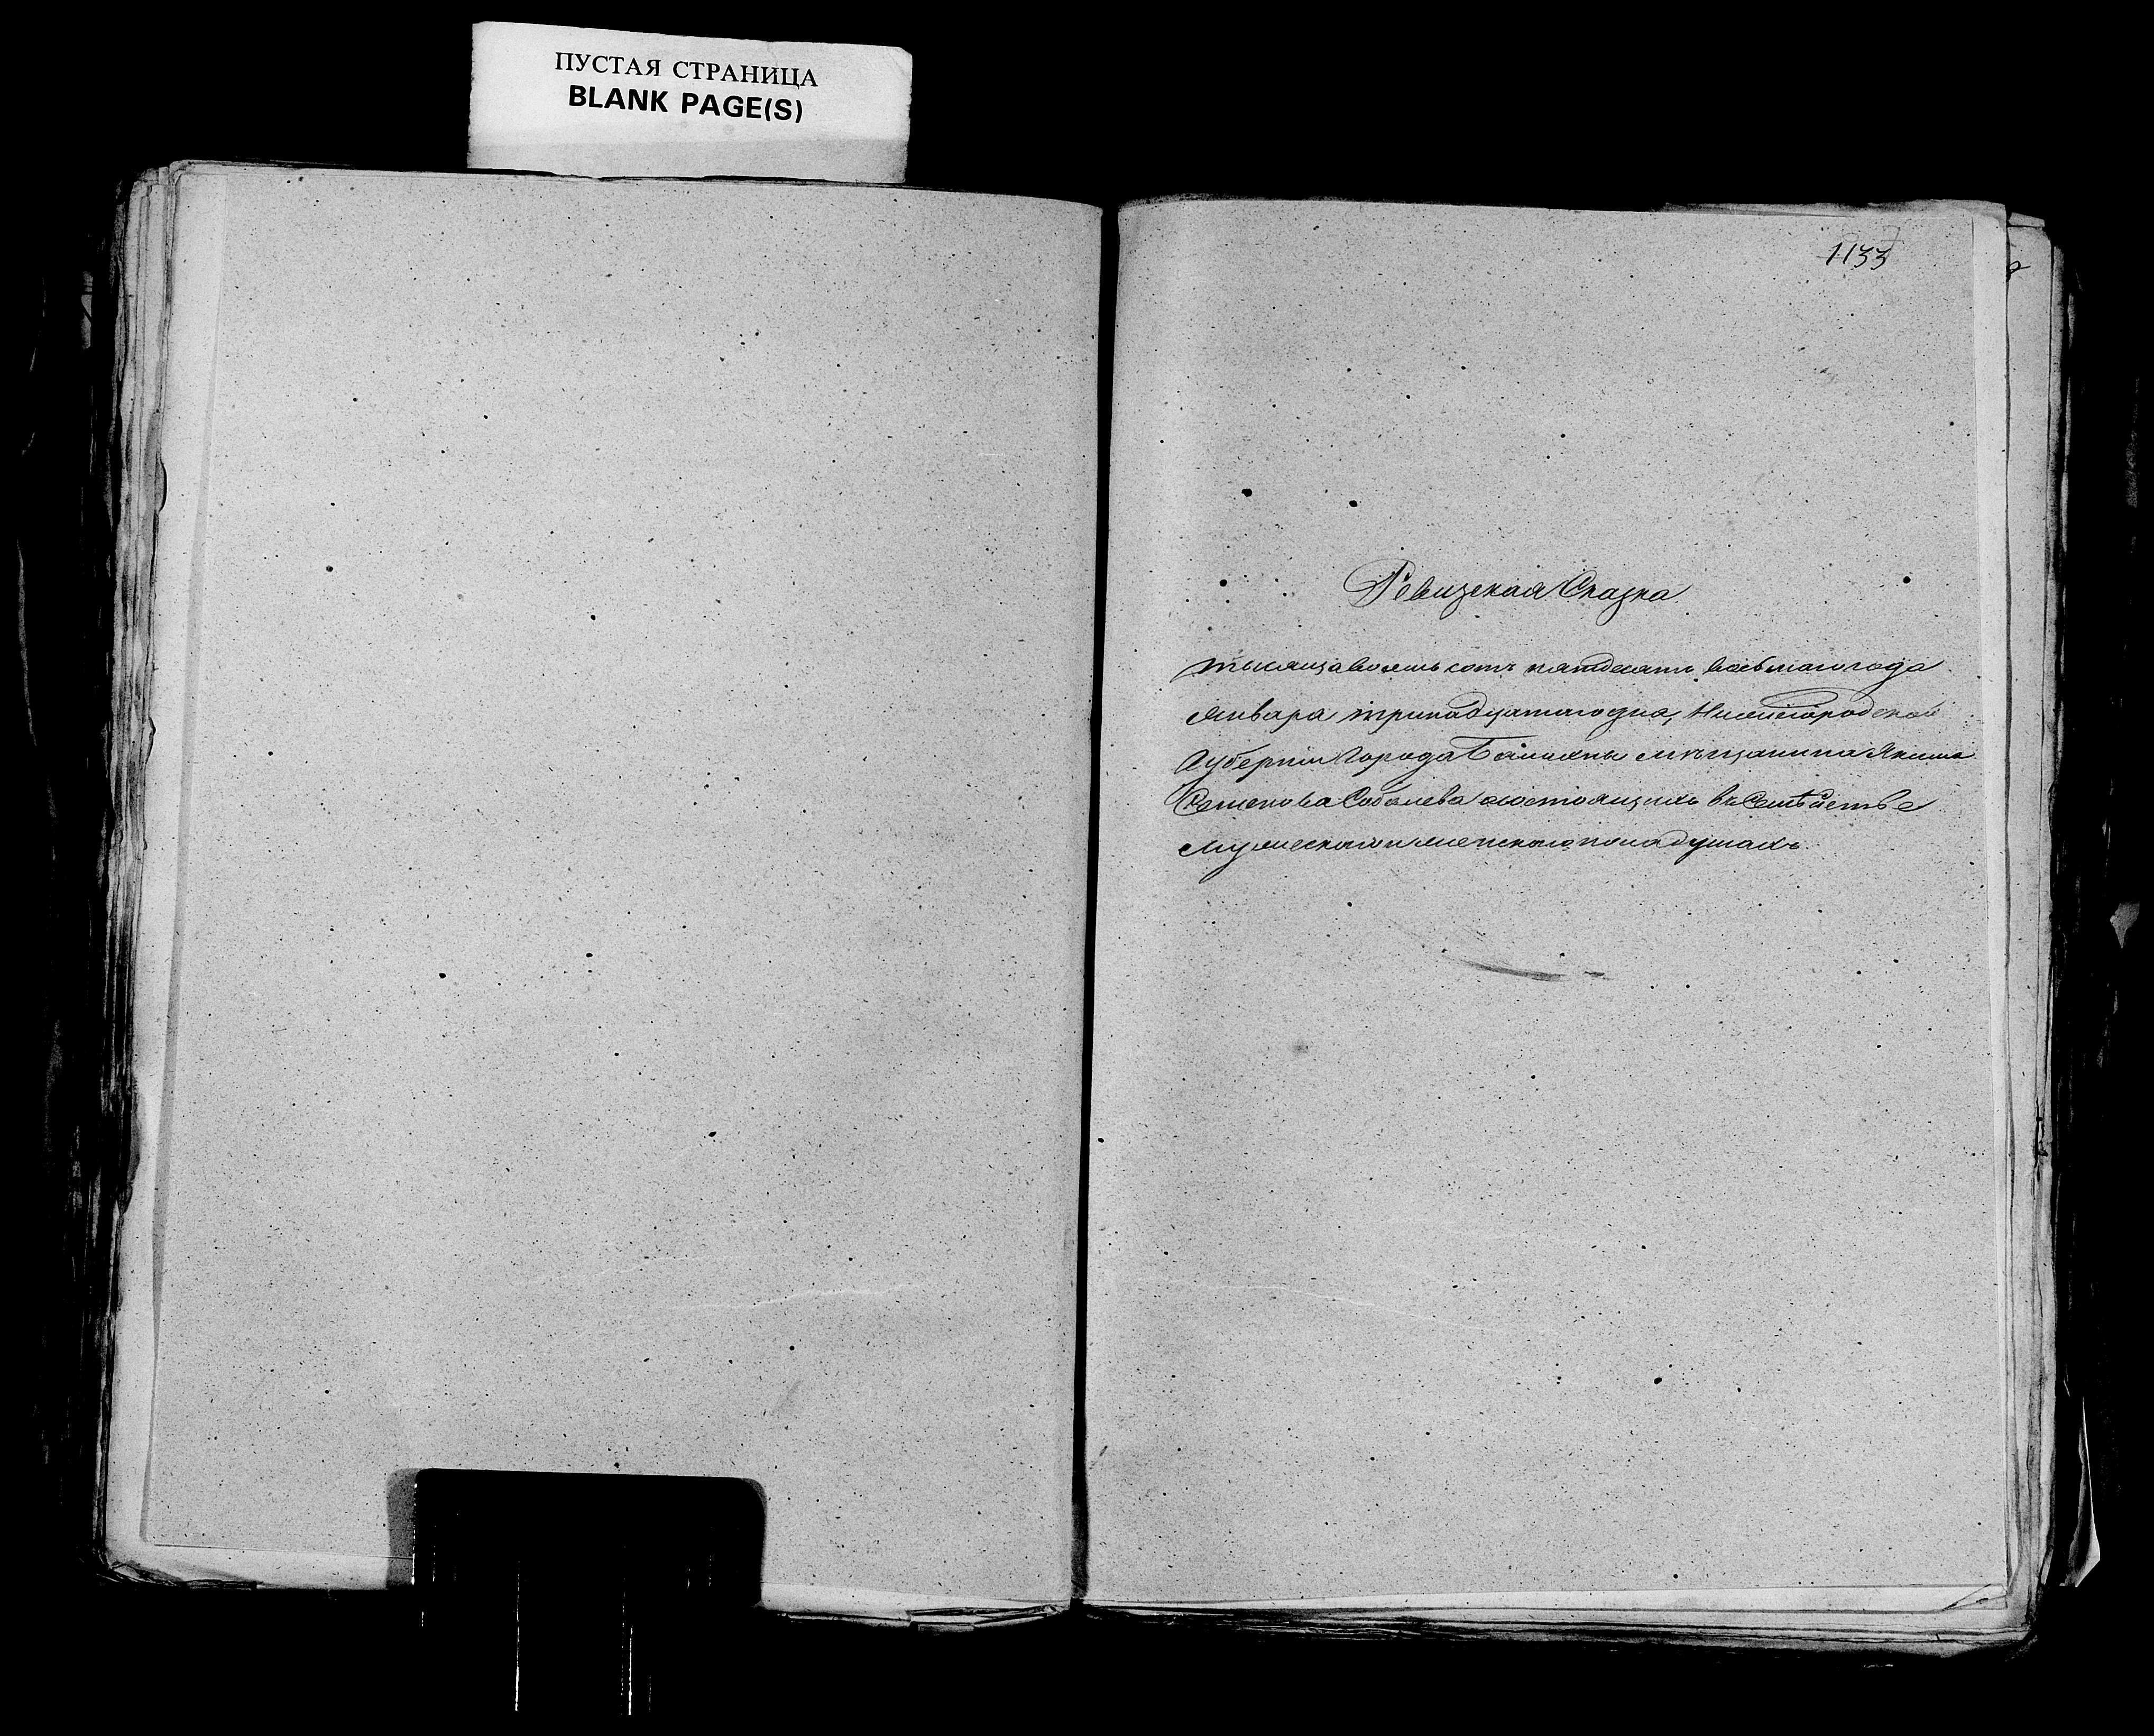 ПУСТАЯ СТРАНИЦА
BLANK PAGE(S)
1133
Ревизская Сказка
тысяща восемь сотъ пятдесятъ восьмаго года
Января тринадцатого дня, Нижегородской
Губернии Города Балахны мѣщанина Якима
Семенова Соболева состоящихъ въ Семѣйстве
мужескаго и женскаго пола душахъ.